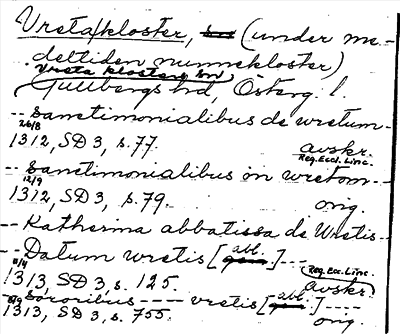 Vreta/kloster, (under me-
deltiden nunnekloster)
Vreta klosters sn
Gullbergs hd, Österg. l.
-- Sanctimonialibus de wretum --
26/8
1312, SD 3, s. 77. avskr.
Reg. Eccl. Linc.
-- Sanctimonialibus in wretom --
12/9
1312, SD 3, s. 79. orig.
-- Katherina abbatissa de Wretis --
-- Datum wretis [abl.] --
1313, SD 3, s. 125. avskr.
Reg. Eccl. Linc.
-- Sororibus ---- vretis [abl.] ----
1313, SD 3, s. 755. orig.